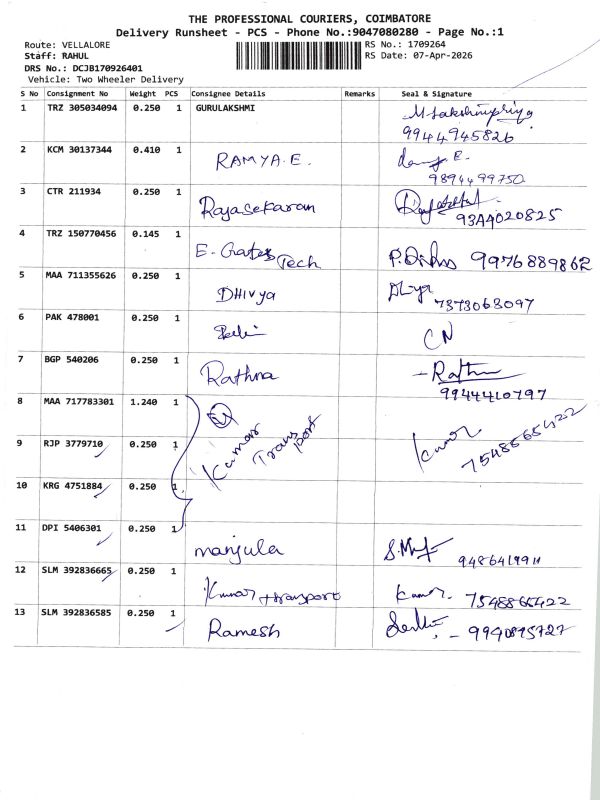 THE PROFESSIONAL COURIERS, COIMBATORE
Delivery Runsheet - PCS - Phone No.:9047080280 - Page No.:1
Route: VELLALORE
Staff: RAHUL
DRS No.: DCJB170926401
Vehicle: Two Wheeler Delivery
RS No.: 1709264
RS Date: 07-Apr-2026
S No Consignment No Weight PCS Consignee Details Remarks Seal & Signature
1 TRZ 305034094 0.250 1 GURULAKSHMI M.Lakshmipriya
9944945826
2 KCM 30137344 0.410 1 RAMYA.E.
9894499750
3 CTR 211934 0.250 1 Rajasekaran
93A4020825
4 TRZ 150770456 0.145 1 E-Gates Tech 9976889862
5 MAA 711355626 0.250 1 DHIVYA
7373063097
6 PAK 478001 0.250 1 CN
7 BGP 540206 0.250 1 Rathna
9944410797
8 MAA 717783301 1.240 1
Kumar Transport Kumar 7548865422
9 RJP 3779710 0.250 1
10 KRG 4751884 0.250 1
11 DPI 5406301 0.250 1 manjula
12 SLM 392836665 0.250 1 Kumar transport Kumar. 7548865422
13 SLM 392836585 0.250 1 Ramesh